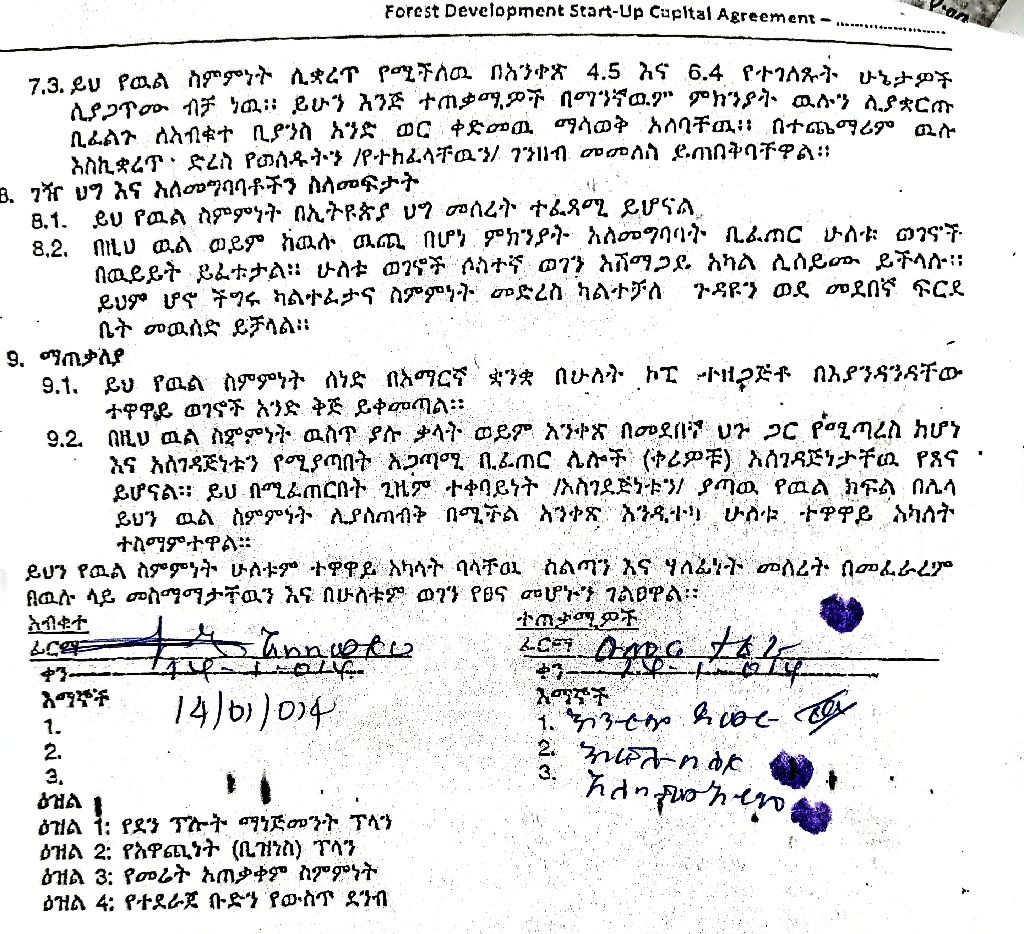 Forest Development Start-Up Capital Agreement – ........................
7.3. ይህ የዉል ስምምነት ሊቋረጥ የሚችለዉ በአንቀጽ 4.5 እና 6.4 የተገለጹት ሁኔታዎች
ሲያጋጥሙ ብቻ ነዉ። ይሁን እንጅ ተጠቃሚዎች በማንኛዉም ምክንያት ዉሉን ሲያቋርጡ
ቢፈልጉ ለአብቁተ ቢያንስ አንድ ወር ቀድመዉ ማሳወቅ አለባቸዉ። በተጨማሪም ዉሉ
እስኪቋረጥ ድረስ የወሰዱትን /የተከፈላቸዉን/ ገንዘብ መመለስ ይጠበቅባቸዋል።
8. ገዥ ህግ እና አለመግባባቶችን ስለመፍታት
8.1. ይህ የዉል ስምምነት በኢትዮጵያ ህግ መሰረት ተፈጻሚ ይሆናል
8.2. በዚህ ዉል ወይም ከዉሉ ዉጪ በሆነ ምክንያት አለመግባባት ቢፈጠር ሁለቱ ወገኖች
በዉይይት ይፈቱታል። ሁለቱ ወገኖች ሶስተኛ ወገን አሸማጋይ አካል ሊሰይሙ ይችላሉ።
ይህም ሆኖ ችግሩ ካልተፈታና ስምምነት መድረስ ካልተቻለ ጉዳዩን ወደ መደበኛ ፍርደ
ቤት መዉሰድ ይቻላል።
9. ማጠቃለያ
9.1. ይህ የዉል ስምምነት ሰነድ በአማርኛ ቋንቋ በሁለት ኮፒ ተዘጋጅቶ በእያንዳንዳቸው
ተዋዋይ ወገኖች አንድ ቅጅ ይቀመጣል።
9.2. በዚህ ዉል ስምምነት ዉስጥ ያሉ ቃላት ወይም አንቀጽ በመደበኛ ህጉ ጋር የሚጣረስ ከሆነ
እና አስገዳጅነቱን የሚያጣበት አጋጣሚ ቢፈጠር ሌሎች (ቀሪዎቹ) አስገዳጅነታቸዉ የጸና
ይሆናል። ይህ በሚፈጠርበት ጊዜም ተቀባይነት /አስገደጅነቱን/ ያጣዉ የዉል ክፍል በሌላ
ይህን ዉል ስምምነት ሊያስጠብቅ በሚችል አንቀጽ እንዲተካ ሁለቱ ተዋዋይ አካለት
ተስማምተዋል።
ይህን የዉል ስምምነት ሁለቱም ተዋዋይ አካላት ባላቸዉ ስልጣን እና ሃላፊነት መሰረት በመፈራረም
በዉሉ ላይ መስማማታቸዉን እና በሁለቱም ወገን የፀና መሆኑን ገልፀዋል።
አብቁተ
ፊርማ
ቀን 14-1-014
እማኞች
14/01/014
1.
2.
3.
ተጠቃሚዎች
ፊርማ
ቀን 14-1-014
እማኞች
1.
2.
3.
ዕዝል
ዕዝል 1: የደን ፕሎት ማነጅመንት ፕላን
ዕዝል 2: የአዋጪነት (ቢዝነስ) ፕላን
ዕዝል 3: የመሬት አጠቃቀም ስምምነት
ዕዝል 4: የተደራጀ ቡድን የውስጥ ደንብ